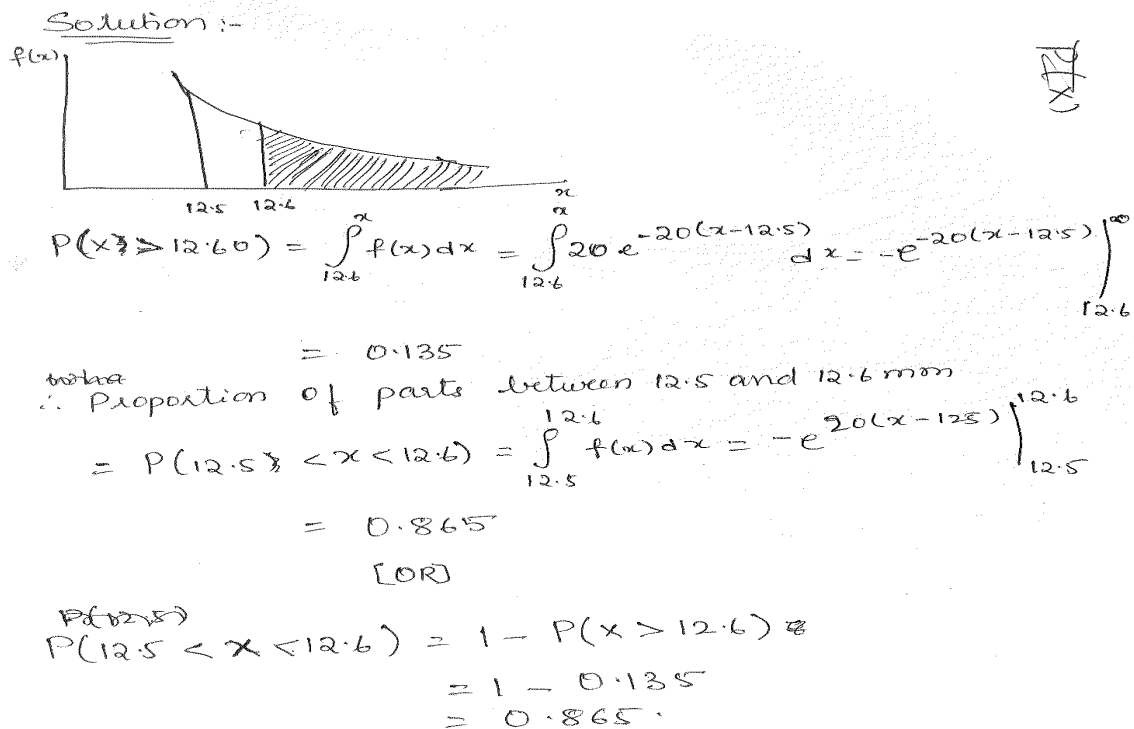 Solution :-
f(x)
12.5 12.6
x
P(x > 12.60) = ∫_{12.6}^{x} f(x)dx = ∫_{12.6}^{x} 20 e^{-20(x-12.5)} dx = -e^{-20(x-12.5)} |_{12.6}^{∞}
= 0.135
∴ Proportion of parts between 12.5 and 12.6 mm
= P(12.5 < x < 12.6) = ∫_{12.5}^{12.6} f(x)dx = -e^{20(x-125)} |_{12.5}^{12.6}
= 0.865
[OR]
P(12.5 < x < 12.6) = 1 - P(x > 12.6)
= 1 - 0.135
= 0.865.